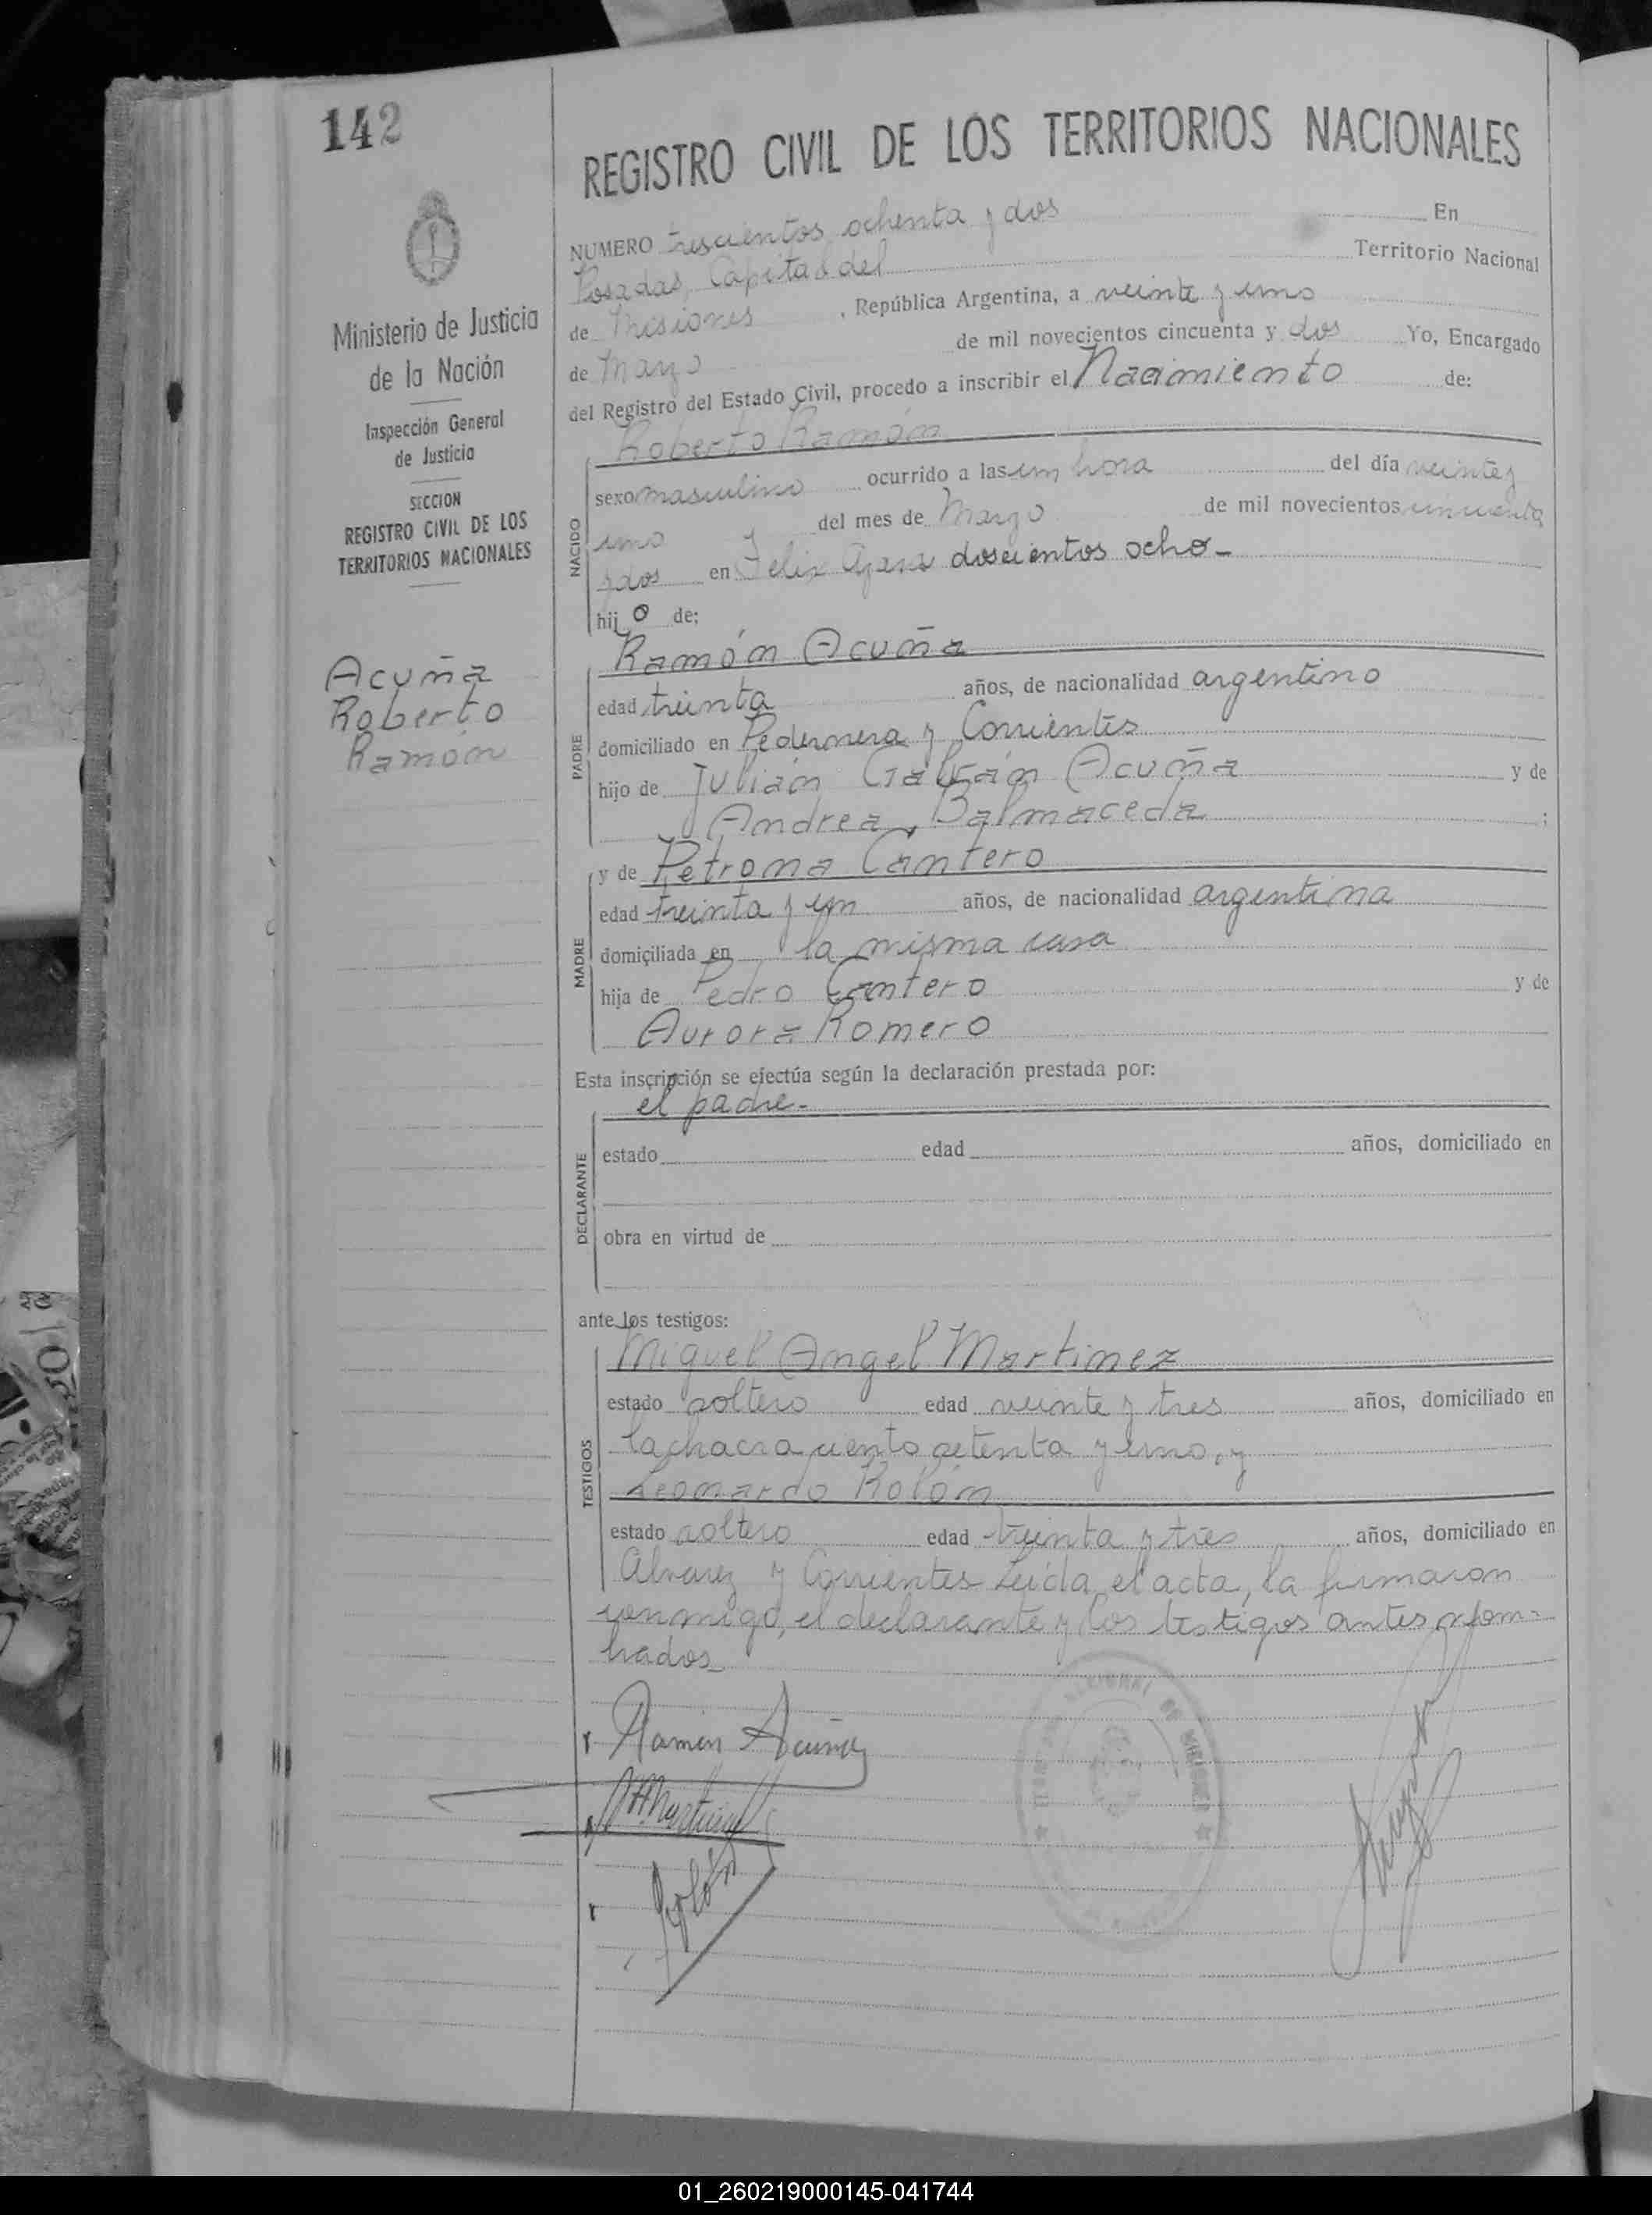 142
REGISTRO CIVIL DE LOS TERRITORIOS NACIONALES
Ministerio de Justicia
de la Nación
Inspección General
de Justicia
SECCION
REGISTRO CIVIL DE LOS
TERRITORIOS NACIONALES
Acuña
Roberto
Ramón
NUMERO trescientos ochenta y dos En
Posadas, Capital del Territorio Nacional
de Misiones, República Argentina, a veinte y uno
de Marzo de mil novecientos cincuenta y dos Yo, Encargado
del Registro del Estado Civil, procedo a inscribir el Nacimiento de:
Roberto Ramón
NACIDO
sexo masculino ocurrido a las un hora del día veinte y
uno del mes de Marzo de mil novecientos cincuenta
y dos en Felix Azara doscientos ocho-
hijo de;
Ramón Acuña
PADRE
edad treinta años, de nacionalidad argentino
domiciliado en Pedernera y Corrientes
hijo de Julián Galván Acuña y de
Andrea Balmaceda ;
y de Petrona Cantero
MADRE
edad treinta y un años, de nacionalidad argentina
domiciliada en la misma casa
hija de Pedro Cantero y de
Aurora Romero
Esta inscripción se efectúa según la declaración prestada por:
el padre-
DECLARANTE
estado edad años, domiciliado en
obra en virtud de
ante los testigos:
Miguel Angel Martinez
TESTIGOS
estado soltero edad veinte y tres años, domiciliado en
la chacra ciento setenta y uno, y
Leonardo Rolón
estado soltero edad treinta y tres años, domiciliado en
Alvarez y Corrientes Leída el acta, la firmaron
conmigo, el declarante y los testigos antes nom-
brados-
Ramón Acuña
MAMartinez
Rolón
NACIONAL DE MISIONES
01_260219000145-041744